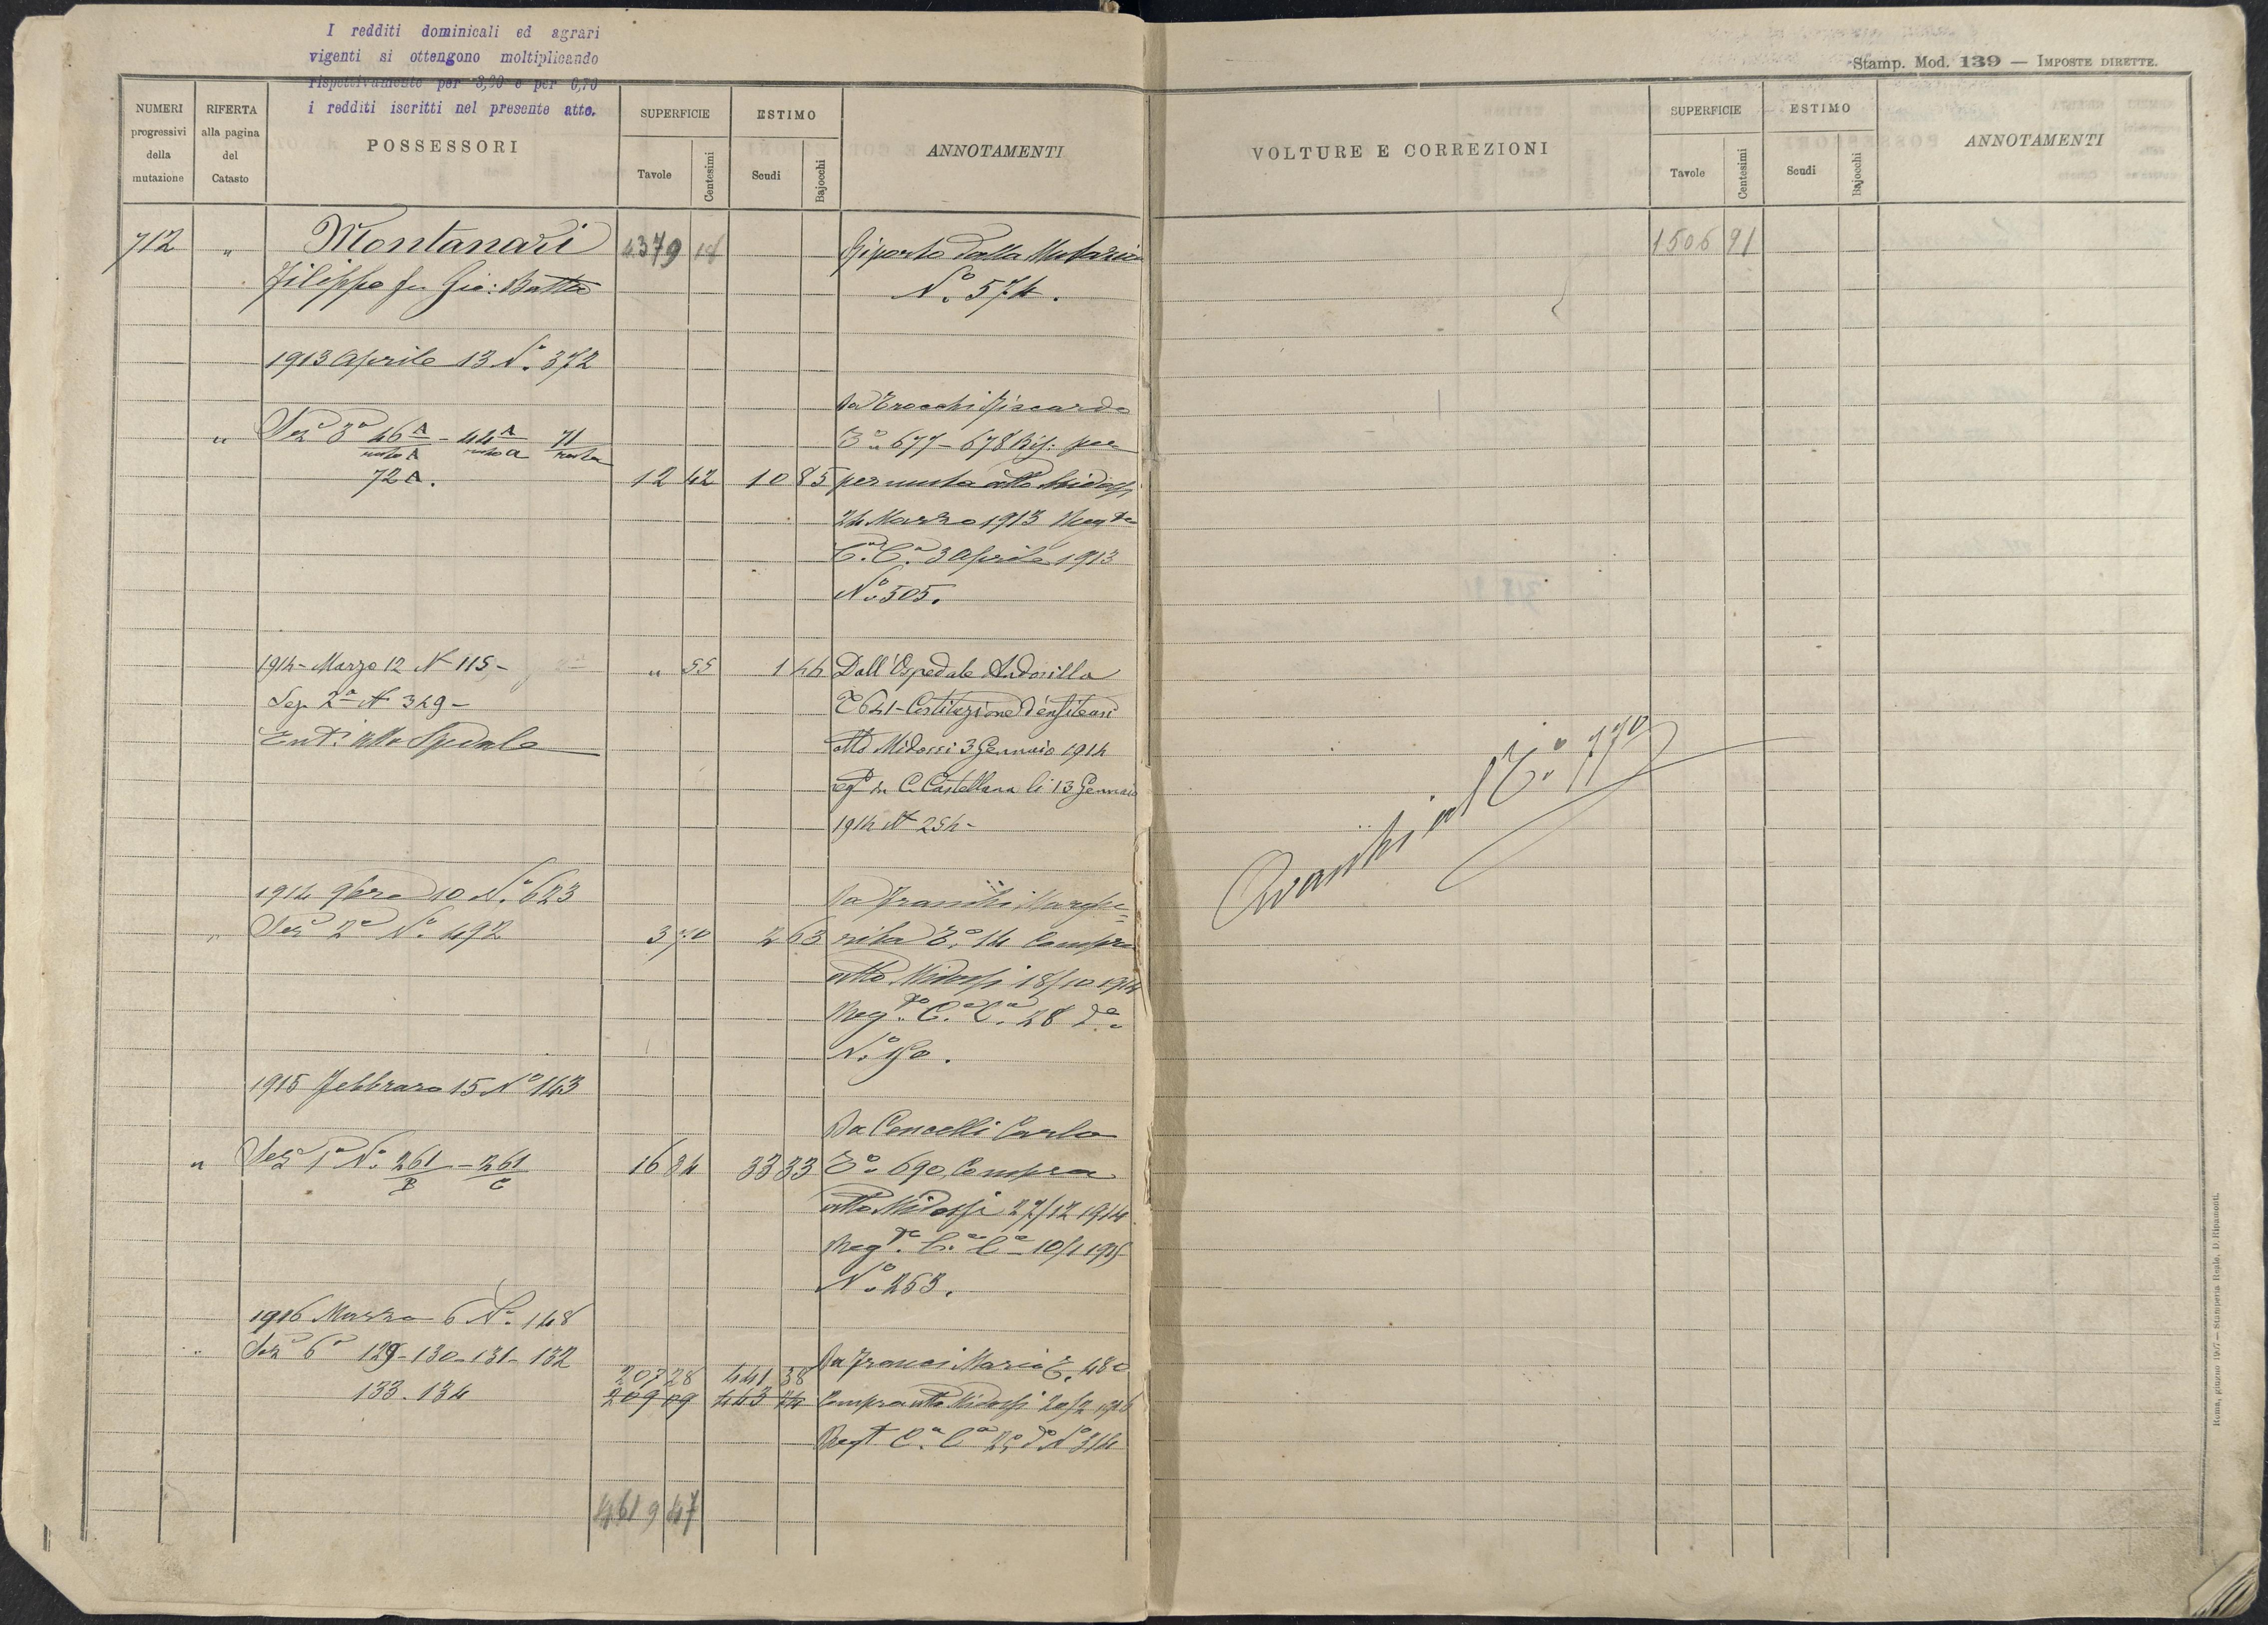 I redditi dominicali ed agrari
vigenti si ottengono moltiplicando
rispettivamente per 3,00 e per 0,70
i redditi iscritti nel presente atto.
Stamp. Mod. 139 — IMPOSTE DIRETTE.
NUMERI progressivi della mutazione
RIFERTA alla pagina del Catasto
POSSESSORI
SUPERFICIE
Tavole
Centesimi
ESTIMO
Scudi
Bajocchi
ANNOTAMENTI
VOLTURE E CORREZIONI
SUPERFICIE
Tavole
Centesimi
ESTIMO
Scudi
Bajocchi
ANNOTAMENTI
712 " Montanari 4379 18 Riporto dalla Mutazione
Filippo fu Gio: Batta N.º 574.
1913 Aprile 13 N.º 372
Da Trocchi Riccardo
" Sez.e 3a 46 A - 44 A 71 T.o 677 - 678 Bis. per
resto A resto a resto
72 A. 12 42 10 85 permuta atto Midossi
24 Marzo 1913 Reg.to
C.a C.a 3 Aprile 1913
N.º 505.
1914 - Marzo 12 N 115 - " 55 1 46 Dall'Ospedale Andosilla
Sez. 2a N 349 - T 641 - Costituzione d'enfiteusi
Enf.i allo Spedale atto Midossi 3 Gennaio 1914
reg.o in C. Castellana li 13 Gennaio
1914 N 254 -
1914 9bre 10 N.º 623 Da Franchi Marghe=
" Sez.e 2a N.º 492 3 70 2 63 rita T.o 14 Compra
atto Midossi 18/10 1914
Reg.to C.a C.a 28 d.o
N.º 190.
1915 Febbraro 15 N.º 143
Da Cencelli Carlo
" Sez.e 1a N.º 261 - 261 16 24 33 33 T.o 690 Compra
B C
atto Midossi 27/12 1914
Reg.to C.a C.a 10/1 1915
N.º 263.
1916 Marzo 6 N.º 148
" Sez.e 6a 129 - 130 - 131 - 132 207 28 441 38 Da Franci Maria T. 480
133. 134 209 09 443 44 Compra atto Midossi 20/2 1916
Regt C.a C.a d.o N.º 314
4619 47
1506 91
Avanti al T.o 770
Roma, giugno 1907 — Stamperia Reale, D. Ripamonti.